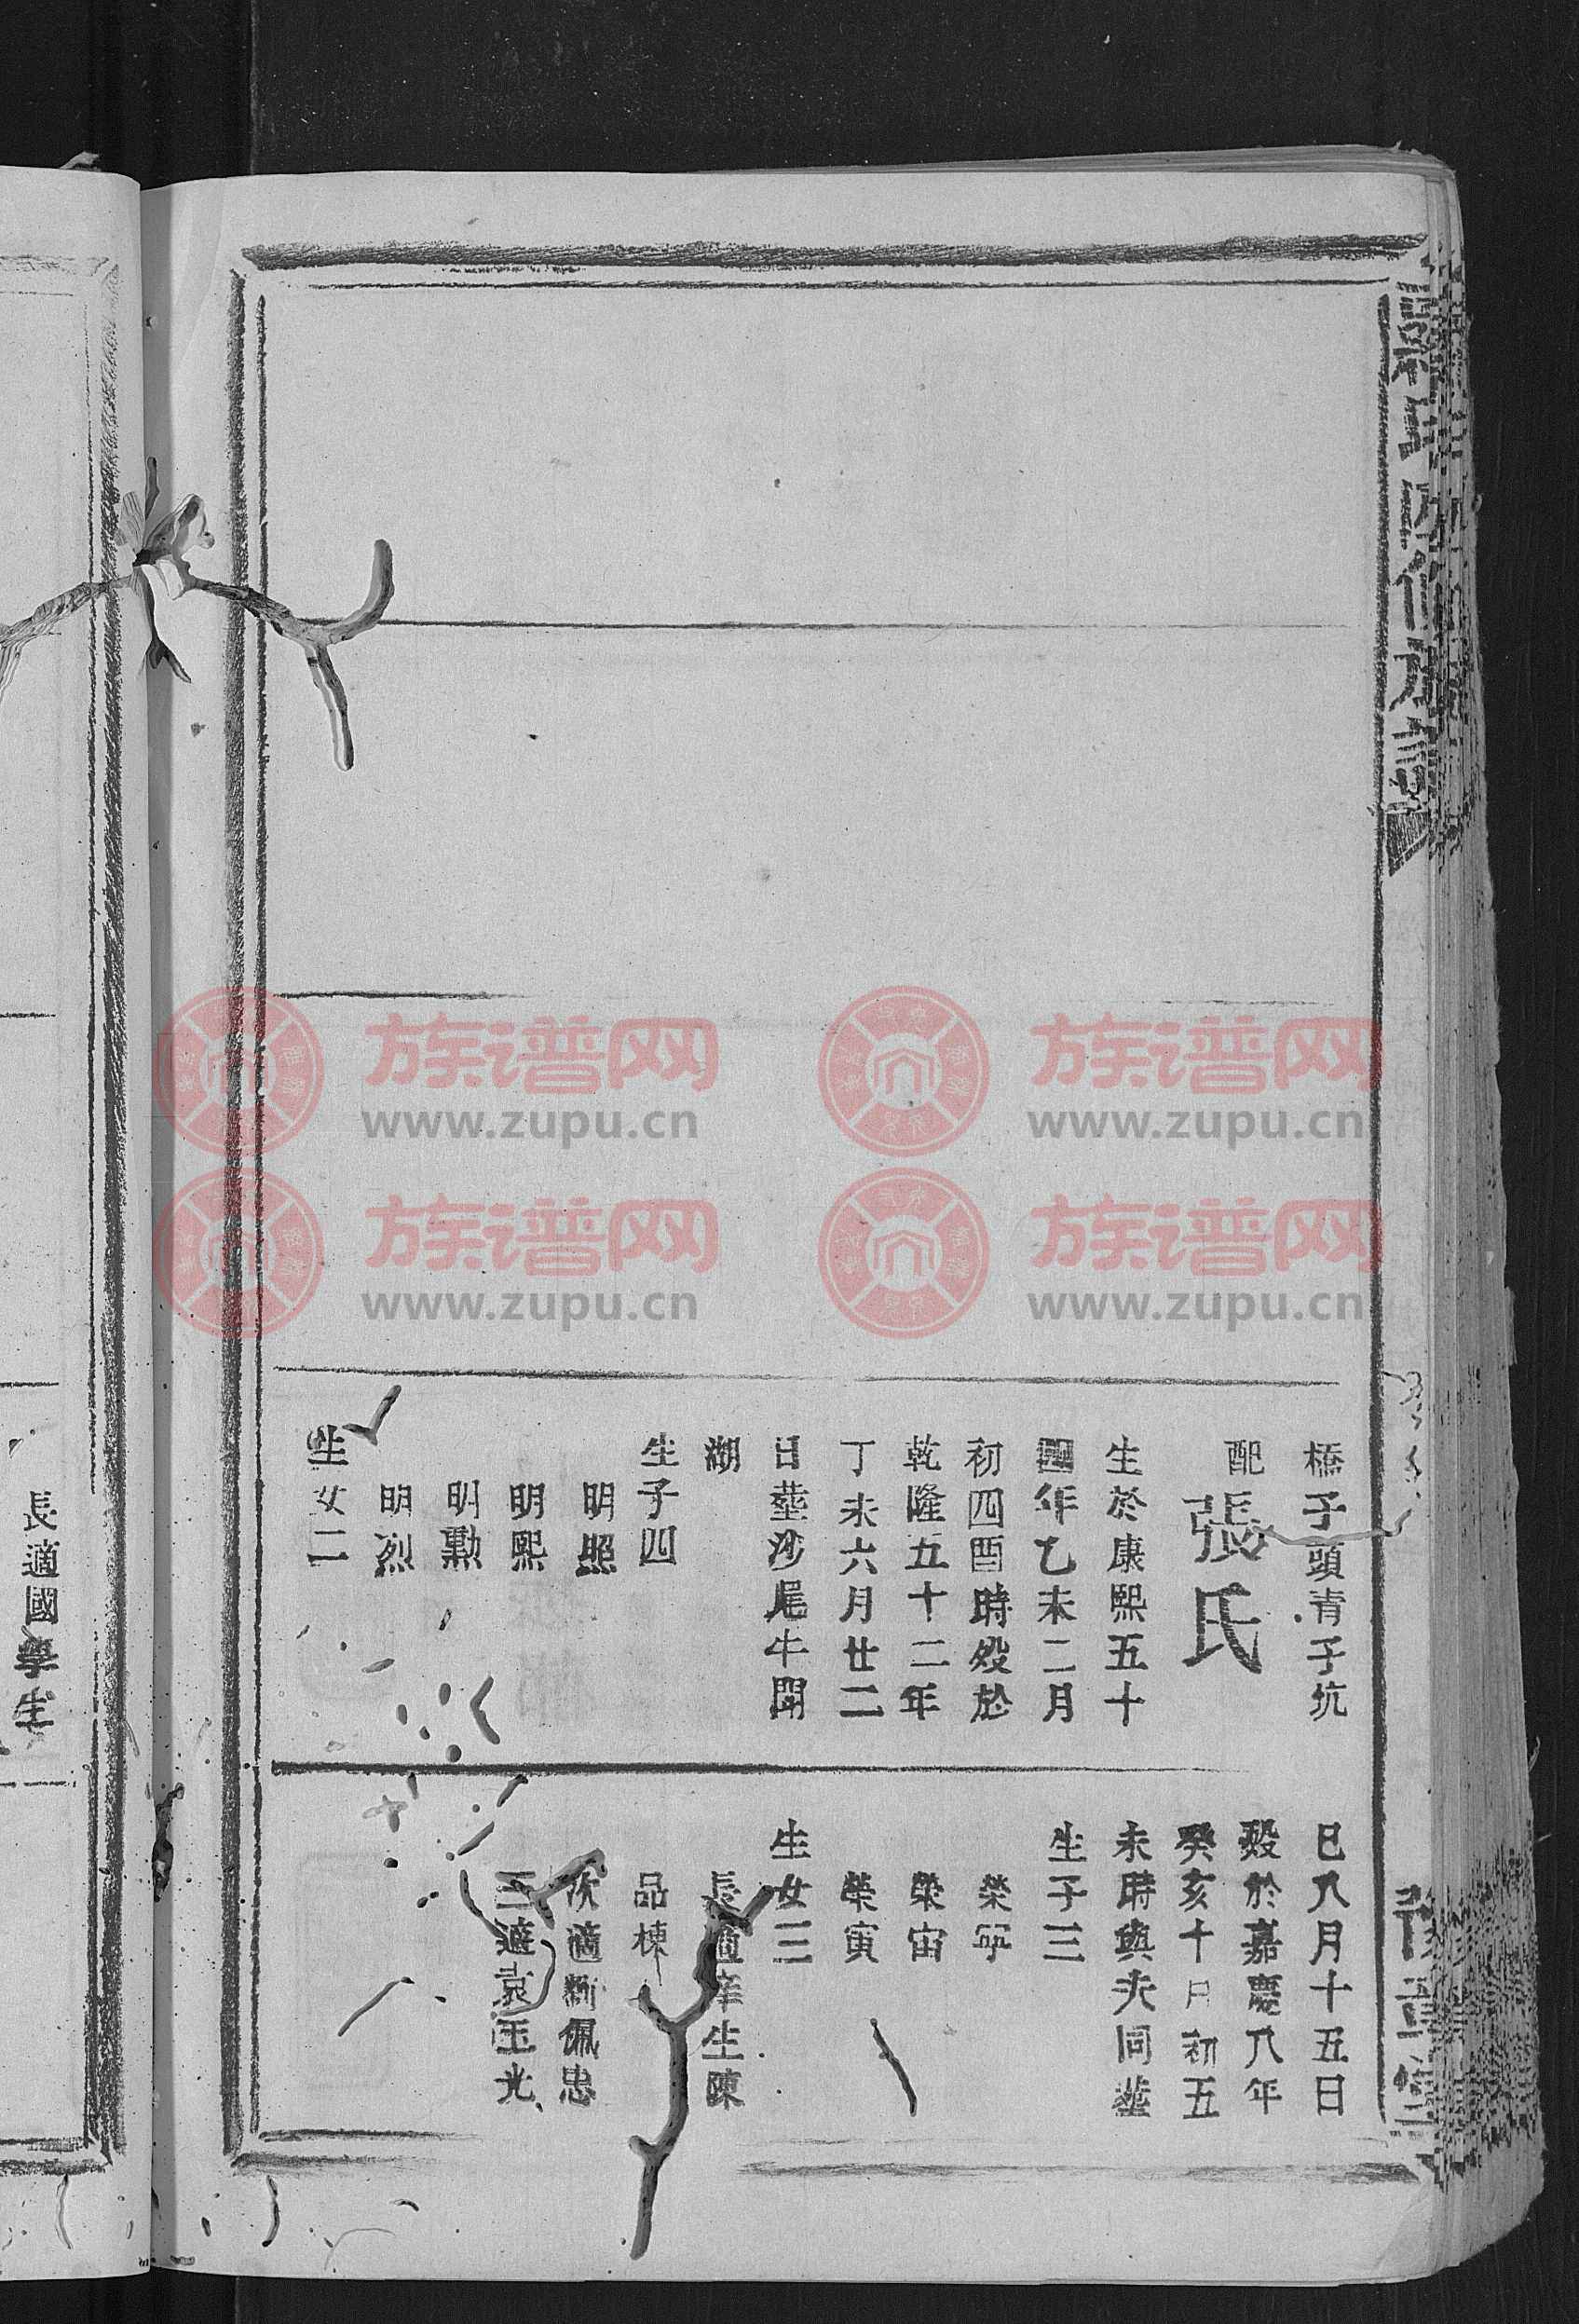 橋子頭青子坑
配
張氏
生於康熙五十
四年乙未二月
初四酉時殁於
乾隆五十二年
丁未六月廿二
日塟沙尾牛開
湖
生子四
明照
明熙
明勳
明烈
生女二
巳八月十五日
殁於嘉慶八年
癸亥十月初五
未時與夫同塟
生子三
榮寧
榮宙
榮寅
生女三
長適辛生陳
品棟
次適 佩忠
三適袁玉光
長適國學生
族谱网
www.zupu.cn
族谱网
www.zupu.cn
族谱网
www.zupu.cn
族谱网
www.zupu.cn